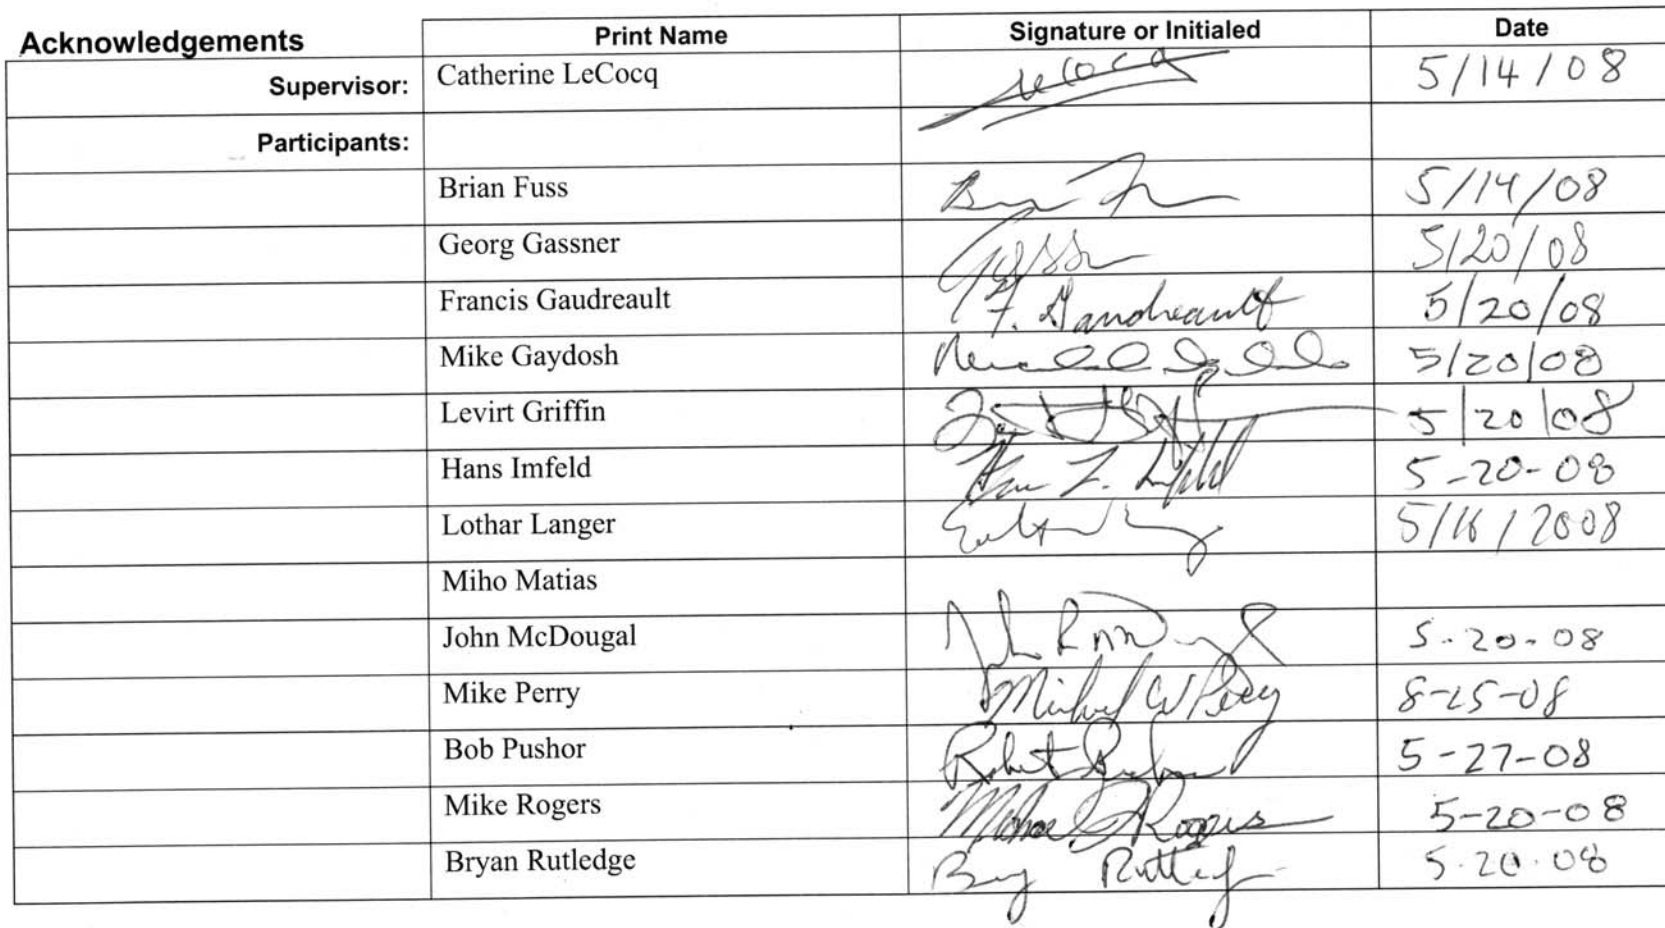 Acknowledgements Print Name Signature or Initialed Date
Supervisor: Catherine LeCocq LeCocq 5/14/08
Participants:
Brian Fuss 5/14/08
Georg Gassner 5/20/08
Francis Gaudreault F. Gaudreault 5/20/08
Mike Gaydosh 5/20/08
Levirt Griffin 5/20/08
Hans Imfeld 5-20-08
Lothar Langer 5/16/2008
Miho Matias
John McDougal John 5-20-08
Mike Perry Michael W Perry 8-25-08
Bob Pushor Robert 5-27-08
Mike Rogers Rogers 5-20-08
Bryan Rutledge 5.20.08